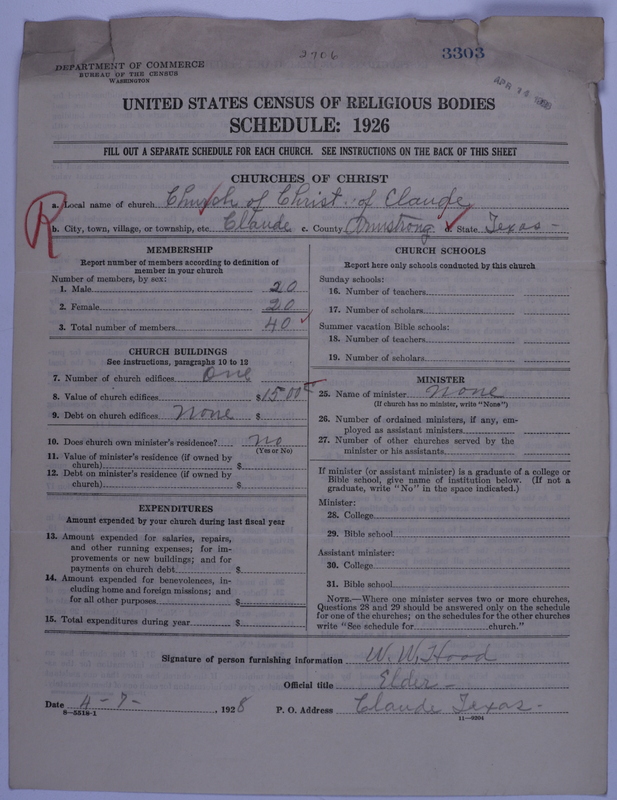 2706
3303
DEPARTMENT OF COMMERCE
BUREAU OF THE CENSUS
WASHINGTON
APR 14
UNITED STATES CENSUS OF RELIGIOUS BODIES
SCHEDULE: 1926
FILL OUT A SEPARATE SCHEDULE FOR EACH CHURCH. SEE INSTRUCTIONS ON THE BACK OF THIS SHEET
CHURCHES OF CHRIST
R
a. Local name of church Church of Christ of Claude
b. City, town, village, or township, etc. Claude c. County Armstrong d. State Texas -
MEMBERSHIP
Report number of members according to definition of
member in your church
Number of members, by sex:
1. Male 20
2. Female 20
3. Total number of members 40
CHURCH BUILDINGS
See instructions, paragraphs 10 to 12
7. Number of church edifices One
8. Value of church edifices $1500
9. Debt on church edifices None $
10. Does church own minister's residence? No
(Yes or No)
11. Value of minister's residence (if owned by
church) $
12. Debt on minister's residence (if owned by
church) $
EXPENDITURES
Amount expended by your church during last fiscal year
13. Amount expended for salaries, repairs,
and other running expenses; for im-
provements or new buildings; and for
payments on church debt $
14. Amount expended for benevolences, in-
cluding home and foreign missions; and
for all other purposes $
15. Total expenditures during year $
CHURCH SCHOOLS
Report here only schools conducted by this church
Sunday schools:
16. Number of teachers
17. Number of scholars
Summer vacation Bible schools:
18. Number of teachers
19. Number of scholars
MINISTER
25. Name of minister None
(If church has no minister, write "None")
26. Number of ordained ministers, if any, em-
ployed as assistant ministers
27. Number of other churches served by the
minister or his assistants
If minister (or assistant minister) is a graduate of a college or
Bible school, give name of institution below. (If not a
graduate, write "No" in the space indicated.)
Minister:
28. College
29. Bible school
Assistant minister:
30. College
31. Bible school
NOTE.—Where one minister serves two or more churches,
Questions 28 and 29 should be answered only on the schedule
for one of the churches; on the schedules for the other churches
write "See schedule for church."
Signature of person furnishing information W. W. Hood
Official title Elder -
Date 4 - 7 - , 1928 P. O. Address Claude Texas -
8-5518-1
11-9204